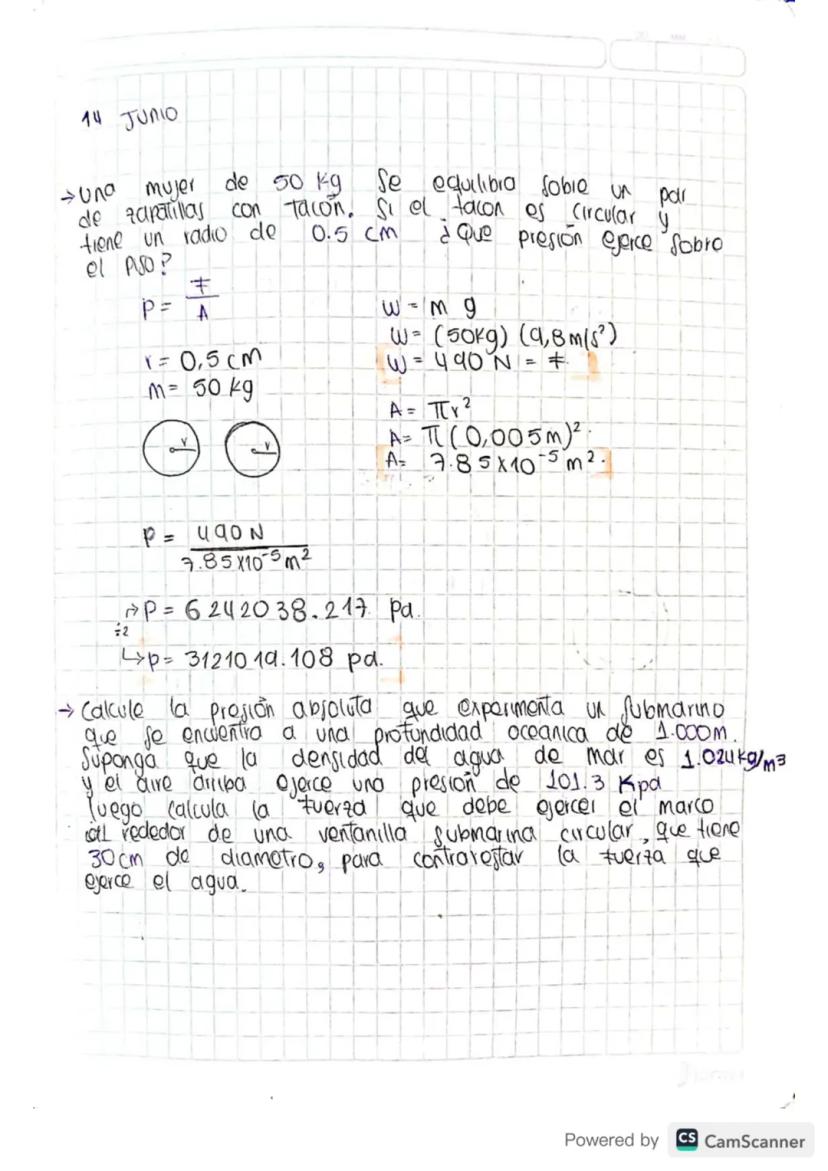 14 JUNIO
→ Una mujer de 50 kg Se equilibra sobre un par
de zapatillas con tacón. Si el tacon es circular y
tiene un radio de 0.5 cm ¿Que presión ejerce sobre
el piso?
P = F/A
W = m g
W = (50kg) (9,8 m/s²)
r = 0,5 cm
W = 490 N = F.
m = 50 kg
A = πr²
r r
A = π(0,005m)².
A = 7.85x10⁻⁵ m².
P = 490 N / 7.85x10⁻⁵ m²
↱P = 6242038.217 pa.
÷2
↳p = 3121019.108 pa.
→ Calcule la presión absoluta que experimenta un submarino
que se encuentra a una profundidad oceanica de 1.000m.
Suponga que la densidad del agua de mar es 1.024kg/m³
y el aire arriba ejerce una presion de 101.3 Kpa
luego calcula la fuerza que debe ejercer el marco
al rededor de una ventanilla submarina circular, que tiene
30cm de diametro, para contrarestar la fuerza que
ejerce el agua.
Powered by CS CamScanner